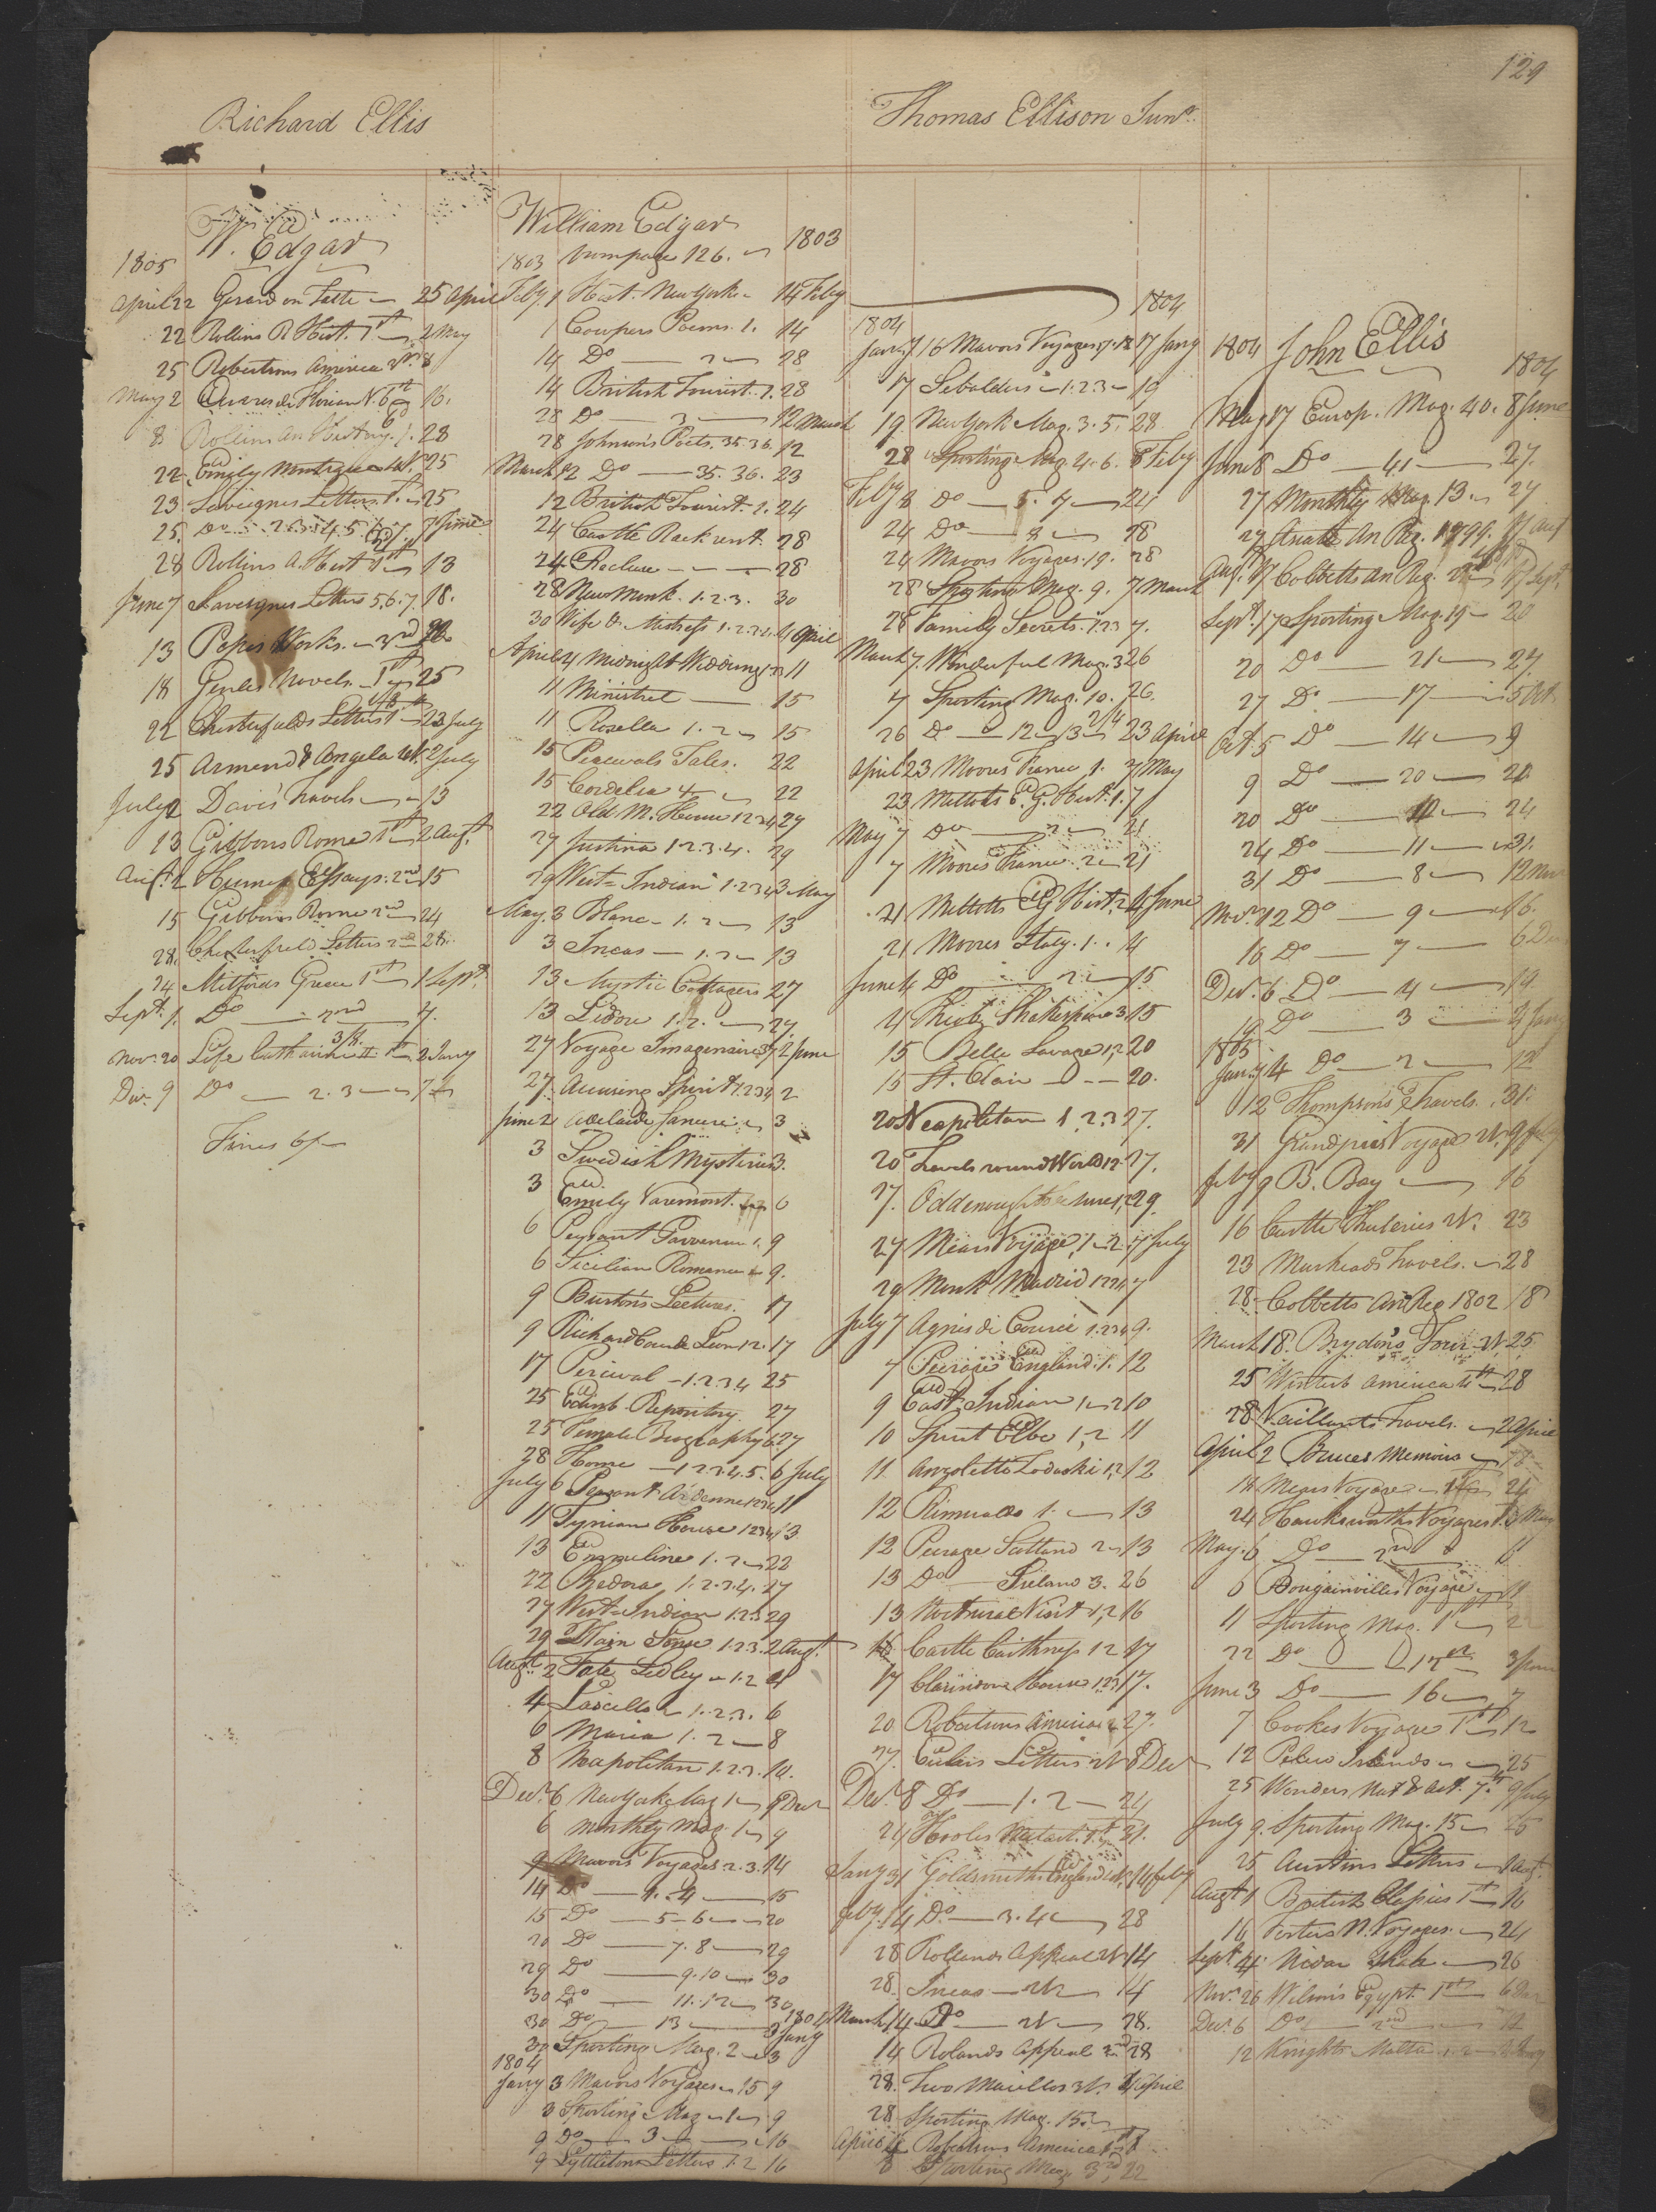 129
Richard Ellis
Thomas Ellison Junr.
W. Edgar
1805
April 22 Gerard on Taste 25 April
22 Rollins R Hist. 1st 2 May
25 Robertsons America 2nd 8
May 2 Oeuvres de Florian N. 6th 16.
8 Rollins An History. 1. 28
22 Emily Montague 25
23 Saveignes Letters 1st. 25
25. Do 2.3.4.5. 7 June
28 Rollins A. Hist 1st 13
June 7 Saveignes Letters 5,6.7. 18.
13 Popes Works. 3rd
18 Genlis Novels. 1st 25
22 Chesterfields Letters 1st 23 July
25 Armend & Angela 2 July
July 2 Davis Travels 13
13 Gibbons Rome 1st 2 Augt.
Augt. 2 Humes Essays. 2nd 15
15 Gibbons Rome 2nd 24
28. Chesterfield Letters 2 28.
24 Mitfords Greece 1st 1 Sept.
Sept. 1. Do 2nd 7.
Nov. 20 Life Catharine II. 1st 2 Jany
Dec. 9 Do 2.3 7
Fines 6/
William Edgar
1803 from page 126. 1803
Feby. 1 Hist. New York 14 Feby
1 Cowpers Poems. 1. 14
14 Do 2 28
14 British Tourist. 1. 28
28 Do 3 12 March
28 Johnson's Poets. 35.36. 12
March 12 Do 35. 36. 23
12 British Tourist. 2. 24
24 Castle Rackrent. 28
24 Recluse 28
28 New Monk. 1.2.3. 30
30 Wife & Mistress 1.2.3.4. 4 April
April 4 Midnight Wedding 1.2.3 11
11 Minstrel 15
11 Rosella 1.2 15
15 Percivals Tales. 22
15 Cordelia 22
22 Old M. House 1234 27
27 Justina 1.2.3.4. 29
29 West Indian 1.2.3.4 3 May
May. 3 Blanc 1.2 13
3 Incas 1.2 13
13 Mystic Cottagers 27
13 Lidore 1.2. 27
27 Voyage Imaginaire 37 2 June
27 Accusing Spirit 1.2.3.4 2
June 2 Adelaide 3
3 Swedish Mysteries 3.
3 Emily Varemont. 6
6 Peasant 9
6 Sicilian Romance 9.
9 Burton's Lectures. 17
9 Richard Coeur de Lion 1.2. 17
17 Percival 1.2.3.4 25
25 Edinb. Repository. 27
25 Female Biography 6 27
28 Home 1.2.3.4.5. 6 July
July 6 Peasant Ardenne 1234 11
11 Tynian House 1234 13
13 Emmeline 1.2 22
22 Medora 1.2.3.4. 27
27 West Indian 1.2.3 29
29 Plain Sense 1.2.3. 2 Augt.
Augt. 2 Tale Sedley 1.2 4
4 Lascelles 1.2.3. 6
6 Maria 1.2 8
8 Neapolitan 1.2.3. 10.
Decr. 6 New York Mag 1 9 Decr
6 Monthly Mag. 1 9
9 Mavors Voyages 2.3. 14
14 Do 1. 4 15
15 Do 5-6 20
20 Do 7.8 29
29 Do 9.10 30
30 Do 11.12 30
30 Do 13 3 Jany 1804
30 Sporting Mag. 2 3
1804
Jany 3 Mavors Voyages 15 9
3 Sporting Mag 1 9
9 Do 3 16
9 Lyttletons Letters 1.2 16
1804
1804
16 Mavors Voyages 17.18 17 Jany
17 Sebaldus 1.2.3 19
19 New York Mag. 3.5. 28
28 Sporting Mag. 4.6. 8 Feby
Feby 8 Do 5. 7 24
24 Do 8 28
24 Mavors Voyages. 19. 28
28 Sporting Mag. 9. 7 March
28 Family Secrets. 1.2.3 7.
March 7. Wonderful Mag. 3 26
7 Sporting Mag. 10. 26.
26 Do 12 13 23 April
April 23 Moores France 1. 7 May
23 Millots E. G. Hist. 1. 7
May 7 Do 2 21
7 Moores France. 2 21
21 Millotts G Hist. 4 June
21 Moores Italy. 1. 4
June 4 Do 2 15
4 Shakespeare 3 15
15 Belle Savage 1,2 20
15 St. Clair 20.
20 Neapolitan 1,2.3 27.
20 Travels round World 1.2. 27.
27. Odd enough to be sure 1,2 29.
27 Mears Voyage 1.2 7 July
29 Monk Madrid 1234 7
July 7 Agnes di Courci 1.234 9.
7 Peerage England. 1. 12
9 East Indian 1.2 10
10 Spirit Elbe 1,2 11
11 Anzoletto Ladoski 1,2 12
12 Rimualdo 1. 13
12 Peerage Scotland 2 13
13 Do Ireland 3. 26
13 Nocturnal Visit 1,2 16
16 Castle Caithness 1.2 17
17 Clarindon House 1.2.3 17.
20 Robertsons America 2 27.
27. Eulers Letters 8 Decr
Decr. 8 Do 1.2 24
24 Hooles Metast. 1st 21.
Jany 31 Goldsmiths England 14 Feby
Feby. 14 Do 3.4 28
28 Rollands Appeal 14
28. Incas 14
March 14 Do 28.
14 Rolands Appeal 2nd 28
28. Two Marillos 4 April
28 Sporting Mag. 15
April 4 Robertsons America 1st 8
8 Sporting Mag. 3rd, 22
John Ellis
1804 1804
May 17 Europ. Mag. 40. 8 June
June 8 Do 41 27.
27 Monthly Mag. 13. 27
27 An Reg. 1799. 17 Aug
Aug. 17 Cobbetts An Reg. 17 Sept.
Sept. 17 Sporting Mag. 19 20
20 Do 21 27
27 Do 17 5 Oct.
Oct. 5 Do 14 9
9 Do 20 20
20 Do 24
24 Do 11 31.
31 Do 8 12 Nov
Nov. 12 Do 9 16.
16 Do 7 6 Dec
Dec. 6 Do 4 19
19 Do 3 4 Jany
1805
Jany 4 Do 2 12
12 Thompson's Travels. 31.
31 Grandpres Voyage 9 Feby
Feby 9 B. Bay 16
16 Castle Thuleries 23
23 Murheads Travels. 28
28. Cobbetts An Reg 1802 18
March 18. Brydon's Tour 25
25 Winterb America 4th 28
28 Vaillants Travels. 2 April
April 2 Bruces Memoirs 18
18 Mears Voyage 24
24 Hawksworths Voyages 6 May
May. 6 Do 2nd
6 Bougainvilles Voyage 11
11 Sporting Mag. 1st 22
22 Do 3 June
June 3 Do 16 7
7 Cookes Voyage 1st 12
12 Pelew Islands 25
25 Wonders Nat & Art. 9 July
July 9. Sporting Mag. 15 25
25 Austins Letters 1 Augt.
Augt 1 British Classics 1st 16
16 Porters N. Voyages. 24
Sept. 4 26
Nov. 26 Wilson's Egypt. 1st 6 Dec
Dec. 6 Do 2nd 12
12 Knights Malta 1.2 Jany